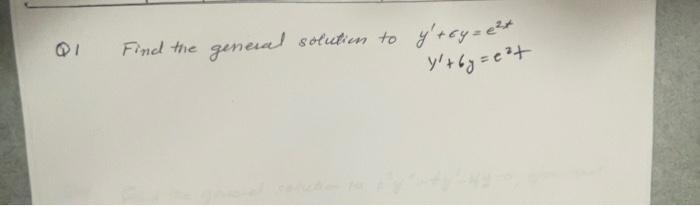 Q1 Find the general solution to y'+6y=e^{2t}
y'+6y=e^{2t}